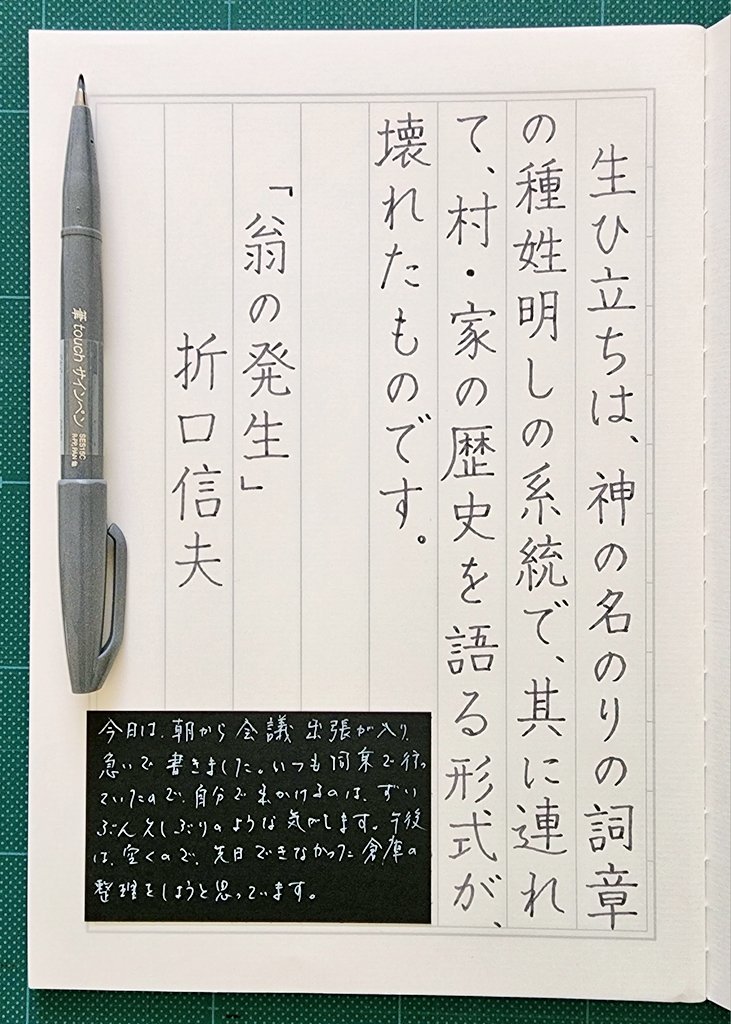 生ひ立ちは、神の名のりの詞章
の種姓明しの系統で、其に連れ
て、村・家の歴史を語る形式が、
壊れたものです。
「翁の発生」
折口信夫
筆touchサインペン
SES15C
今日は、朝から会議出張が入り、
急いで書きました。いつも同乗で行っ
ていたので、自分で出かけるのは、ずい
ぶん久しぶりのような気がします。午後
は、空くので、先日できなかった倉庫の
整理をしようと思っています。